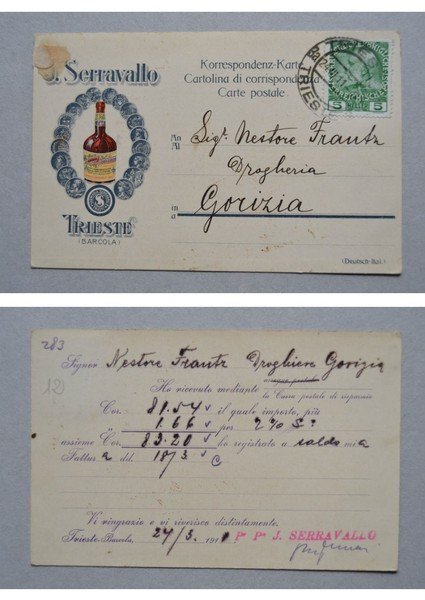 J. Serravallo
TRIESTE
(BARCOLA)
Korrespondenz-Karte
Cartolina di corrispondenza
Carte postale
5 5
An
Al
Sigr. Nestore Frantz
Drogheria
in
a
Gorizia
(Deutsch-Ital.)
283
12)
Signor Nestore Frantz Droghiere Gorizia
Ho ricevuto mediante
la Cassa postale di risparmio
Cor. 81.54 il quale importo, più
" 1.66 per 2% S.
assieme Cor. 83.20 ho registrato a saldo mia
Fattura dd. 18/3
Vi ringrazio e vi riverisco distintamente.
Trieste-Barcola, 24/3. 191
Pa Pa J. SERRAVALLO